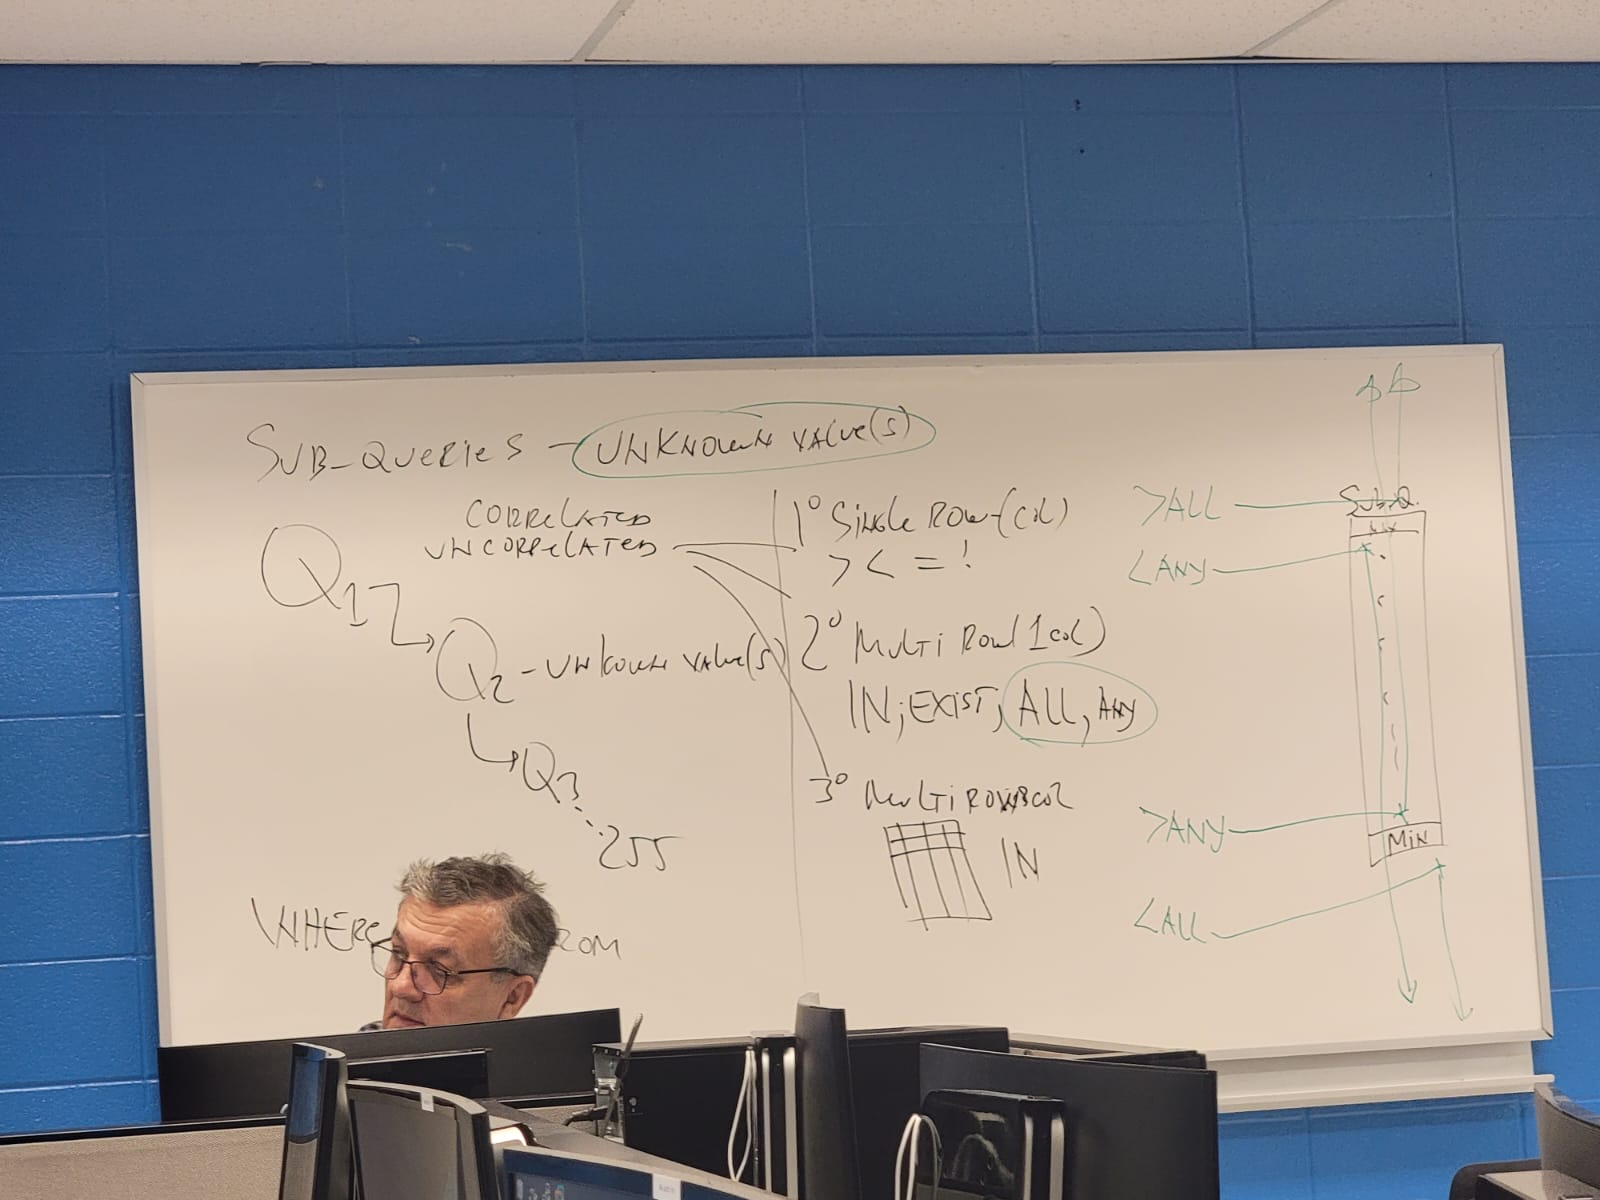 SUB-QUERIES - UNKNOWN VALUE(S)
CORRELATED
UNCORRELATED
Q1
Q2 - UNKOWN VALUE(S)
Q3
255
WHERE
ROM
1° SINGLE ROW-(COL)
> < = !
2° MULTI ROW (1 COL)
IN; EXIST; ALL, ANY
3° MULTI ROW COL
IN
>ALL
SubQ.
<ANY
>ANY
MIN
<ALL